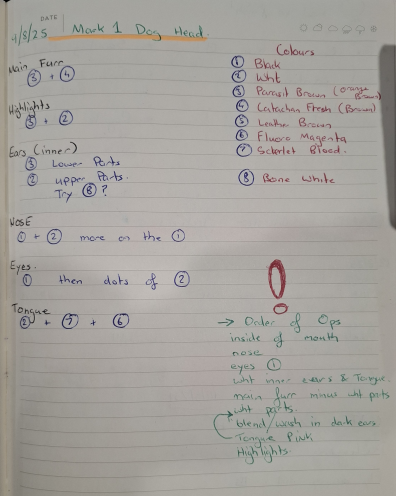 DATE
4/8/25 Mark 1 Dog Head.
Main Furr
③ + ④
Highlights
③ + ②
Ears (inner)
③ Lower Parts
② upper Parts.
Try ⑧ ?
NOSE
① + ② more on the ①
Eyes.
① then dots of ②
Tongue
② + ⑦ + ⑥
Colours
① Black
② Wht
③ Brown (orange Brown)
④ Catachan Flesh (Brown)
⑤ Leather Brown
⑥ Fluoro Magenta
⑦ Scarlet Blood.
⑧ Bone White
!
→ Order of Ops
inside of mouth
nose
eyes ①
wht inner ears & Tongue.
main furr minus wht parts
wht parts.
blend/wash in dark ears
Tongue Pink
Highlights.